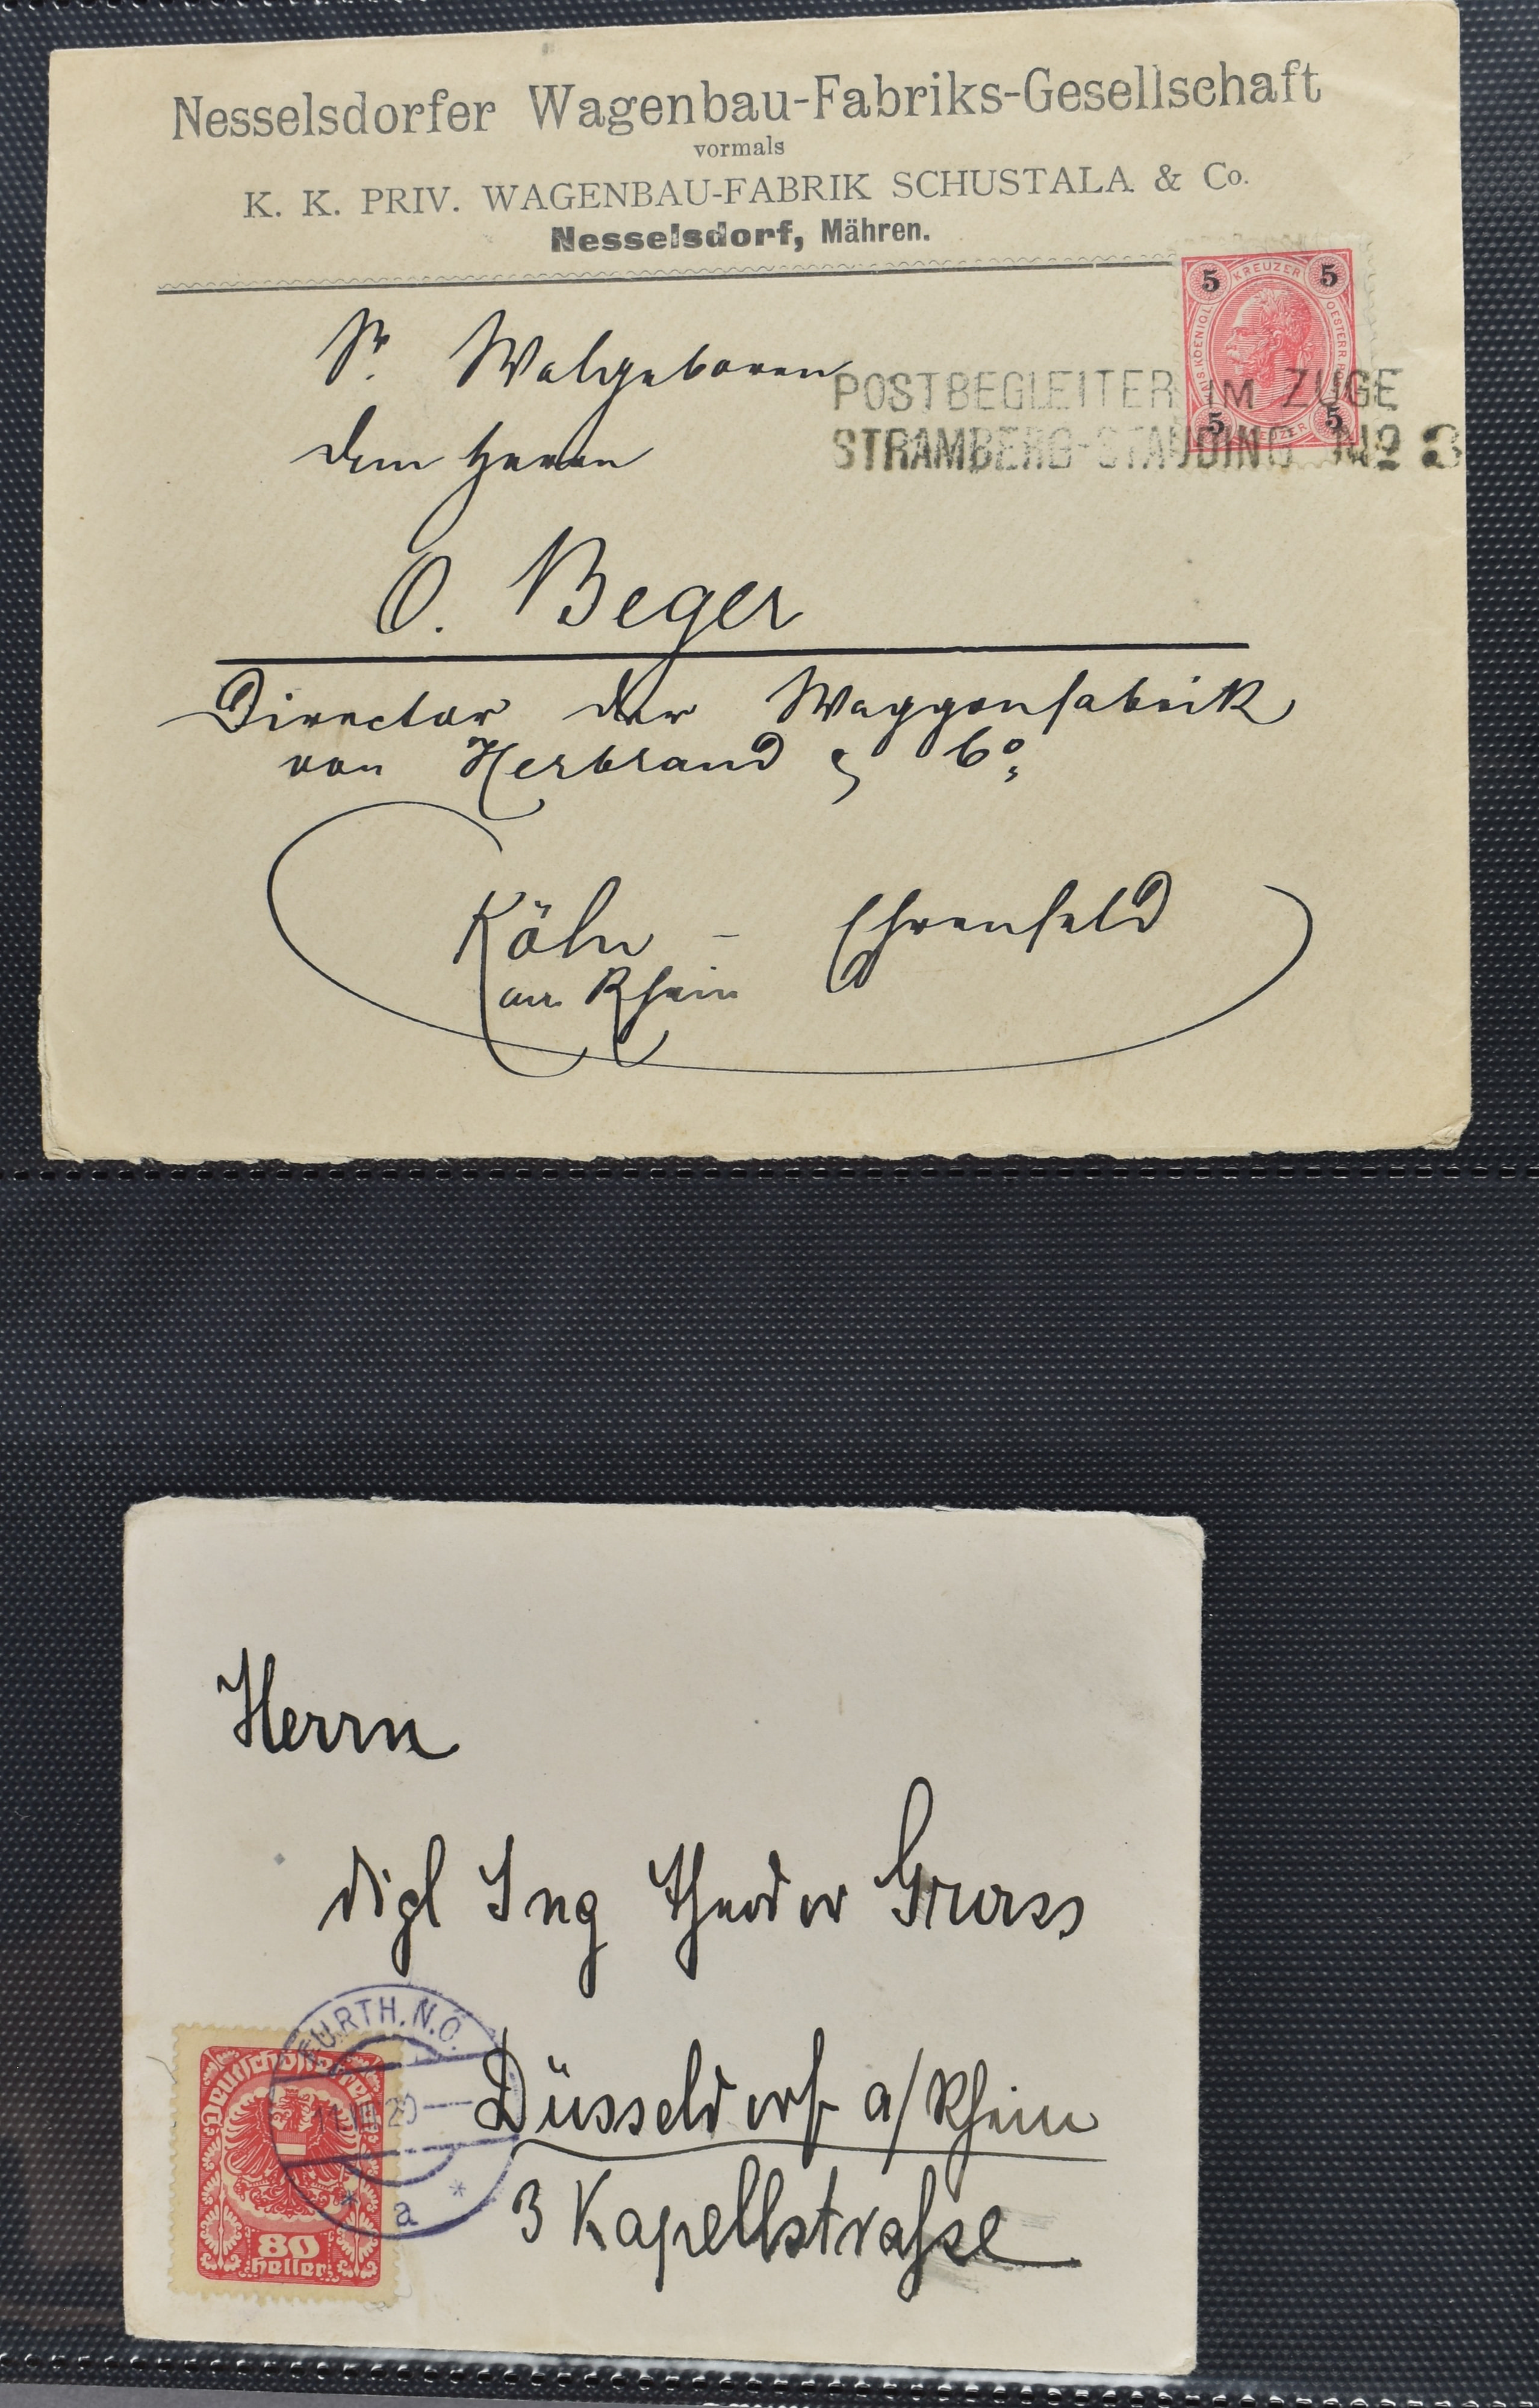 Nesselsdorfer Wagenbau-Fabriks-Gesellschaft
vormals
K. K. PRIV. WAGENBAU-FABRIK SCHUSTALA & Co.
Nesselsdorf, Mähren.
5 KREUZER 5
5 5
Sr. Wolgeboren
POSTBEGLEITER IM ZUGE
STRAMBERG-STAUDING No 3
dem Herrn
O. Beger
Director der Waggonfabrik
von Herbrand & Co,
Köln - Ehrenfeld
am Rhein
Herrn
dipl Ing Theodor Gross
FURTH. N.Ö.
Deutschösterreich
20
Düsseldorf a/Rhein
* a *
3 Kapellstraße
80
Heller